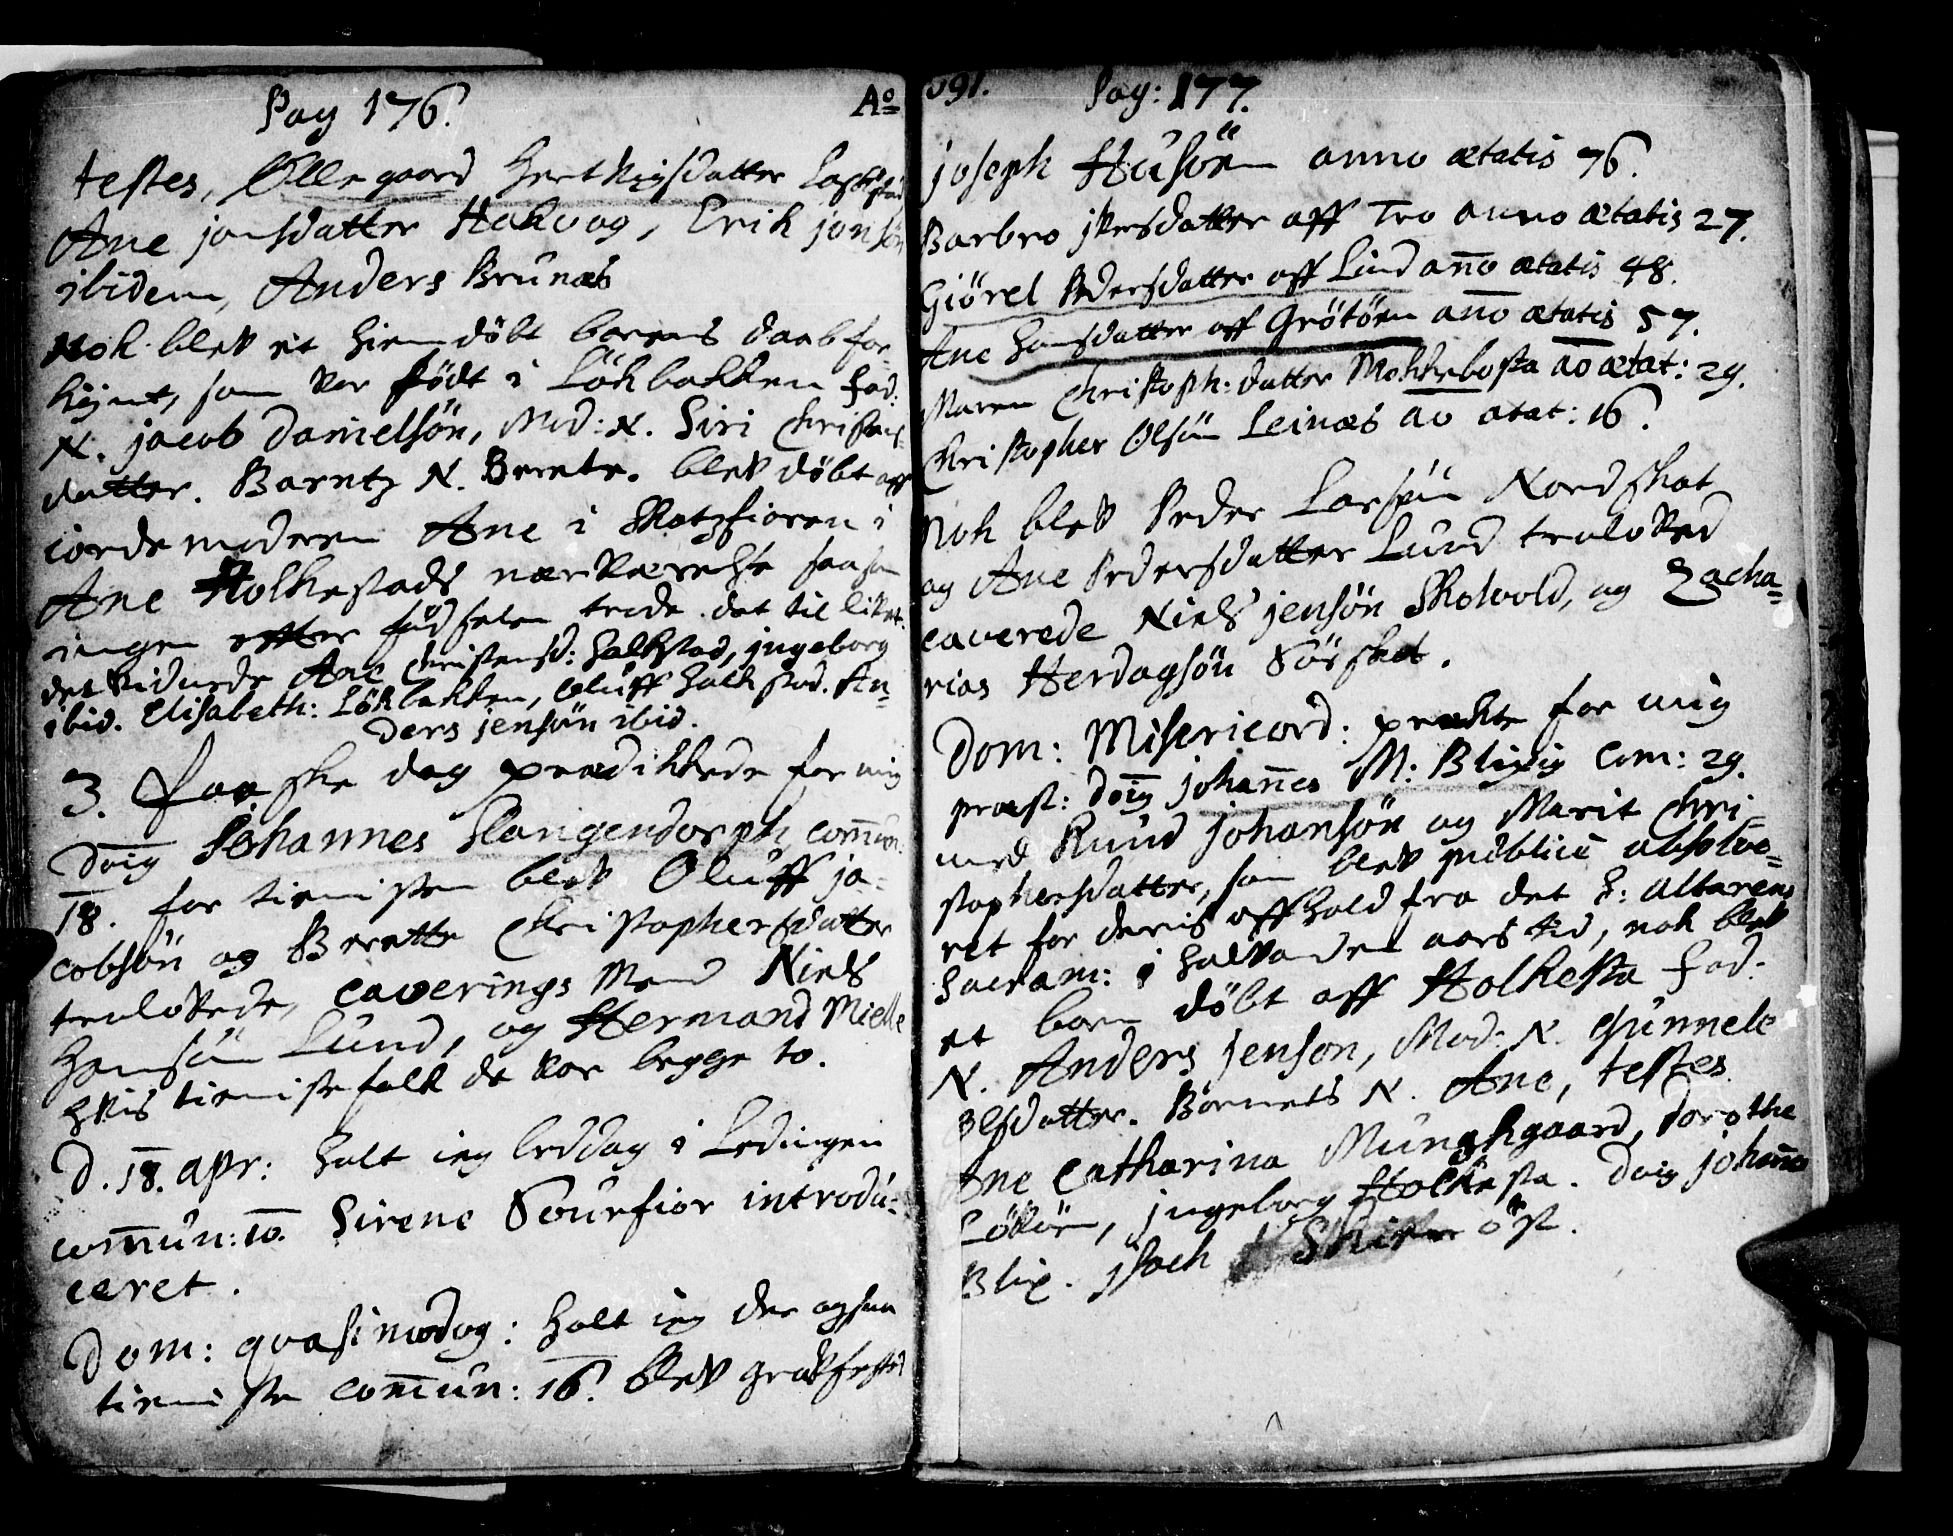 Pag 176. Ao
testes, Ollegaard Hertvigsdatter
Ane jonsdatter Hakvog, Erik jonsøn
ibidem, Anders Brunæs
Nok blev et hiemdøbt barens daab for-
kynt, som var født i Løkbakken fad:
N. jacob Danielsøn, Mod: N. Siri Christens
datter. Barntz N. Berete. blev døbt aff
iordemoderen Ane i Skotzfioren i
Ane Holkestads nærværelse saasom
ingen effter fødselen trode det til livet.
det vidnede Ane Christensd: Halkstad, jngeborg
ibid. Elisabeth: Løkbakken, Oluff Halkstad. An-
ders jensøn ibid.
3. Paaske dag prædikkede for mig
Dnig Johannes Hangendorph, commun.
18. for tienisten blev Oluff ja-
cobsøn og Berette Christophersdatter
trolovede, caverings Mend Niels
Hansøn Lund, og Hermand Mielle
Hvis tienistefolk de var begge to.
D. 18. apr: Holt ieg beddag i Ledingen
commun: 10. Sirene Sourfior introdu-
ceret.
Dom: qvasimodog: Holt ieg der ogsaa
tieniste commun: 16. blev gravfested
691. Pag: 177.
joseph Husøen anno ætatis 76.
Barbro jversdatter aff Tro anno ætatis 27.
Giørel Pedersdatter aff Lund anno ætatis 48.
Ane Hansdatter aff Grøtøen anno ætatis 57.
Maren Christoph: datter Mokkebosta ao ætat: 29.
Christopher Olsøn Leinæs ao ætat: 16.
Nok blev Peder Larsøn Nordskat
og Ane Pedersdatter Lund troloved
caverede Niels jensøn Skotvold, og Zacha-
rias Herdagsøn Sørskat.
Dom: Misericord: prækte for mig
præst: Dnig johannes M: Blixig Com: 29.
med Knud johansøn og Marit Chri-
stophersdatter, som blev publice absolve-
ret for deris affhold fra det H: altarens
Sacram: i halvandet aars tid, nok blev
et barn døbt aff Holkesta fad:
N. Anders jenson, Mod: N. Gunnele
Olsdatter. Børnets N. Ane, testes
Ane Catharina Munchgaard, Dorothe
Løvøen, jngeborg Holkesta. Dnig johannes
Blix. jsach øst.